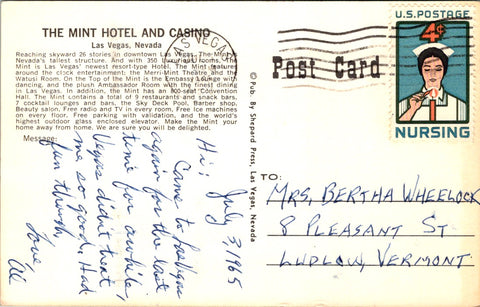 THE MINT HOTEL AND CASINO
Las Vegas, Nevada
Reaching skyward 26 stories in downtown Las Vegas. The Mint is
Nevada's tallest structure. And with 350 luxurious rooms, The
Mint is Las Vegas' newest resort-type hotel. The Mint features
around the clock entertainment: the Merri-Mint Theatre and the
Watusi Room. On the Top of the Mint is the Embassy Lounge with
dancing, and the plush Ambassador Room with the finest dining
in Las Vegas. In addition, the Mint has an 800-seat Convention
Hall. The Mint contains a total of 9 restaurants and snack bars,
7 cocktail lounges and bars, the Sky Deck Pool, Barber shop,
Beauty salon. Free radio and TV in every room. Free ice machines
on every floor. Free parking with validation, and the world's
highest outdoor glass enclosed elevator. Make the Mint your
home away from home. We are sure you will be delighted.
Message:
July 3, 1965
Hi;
Came to Las Vegas
again for the last
time for awhile,
Vegas didn't treat
me so good, Had
fun though
Love,
Al
© Pub. By Shepard Press, Las Vegas, Nevada
LAS VEGAS
NEV
Post Card
U.S. POSTAGE
4¢
NURSING
TO:
MRS, BERTHA WHEELOCK
8 PLEASANT ST
LUDLOW, VERMONT